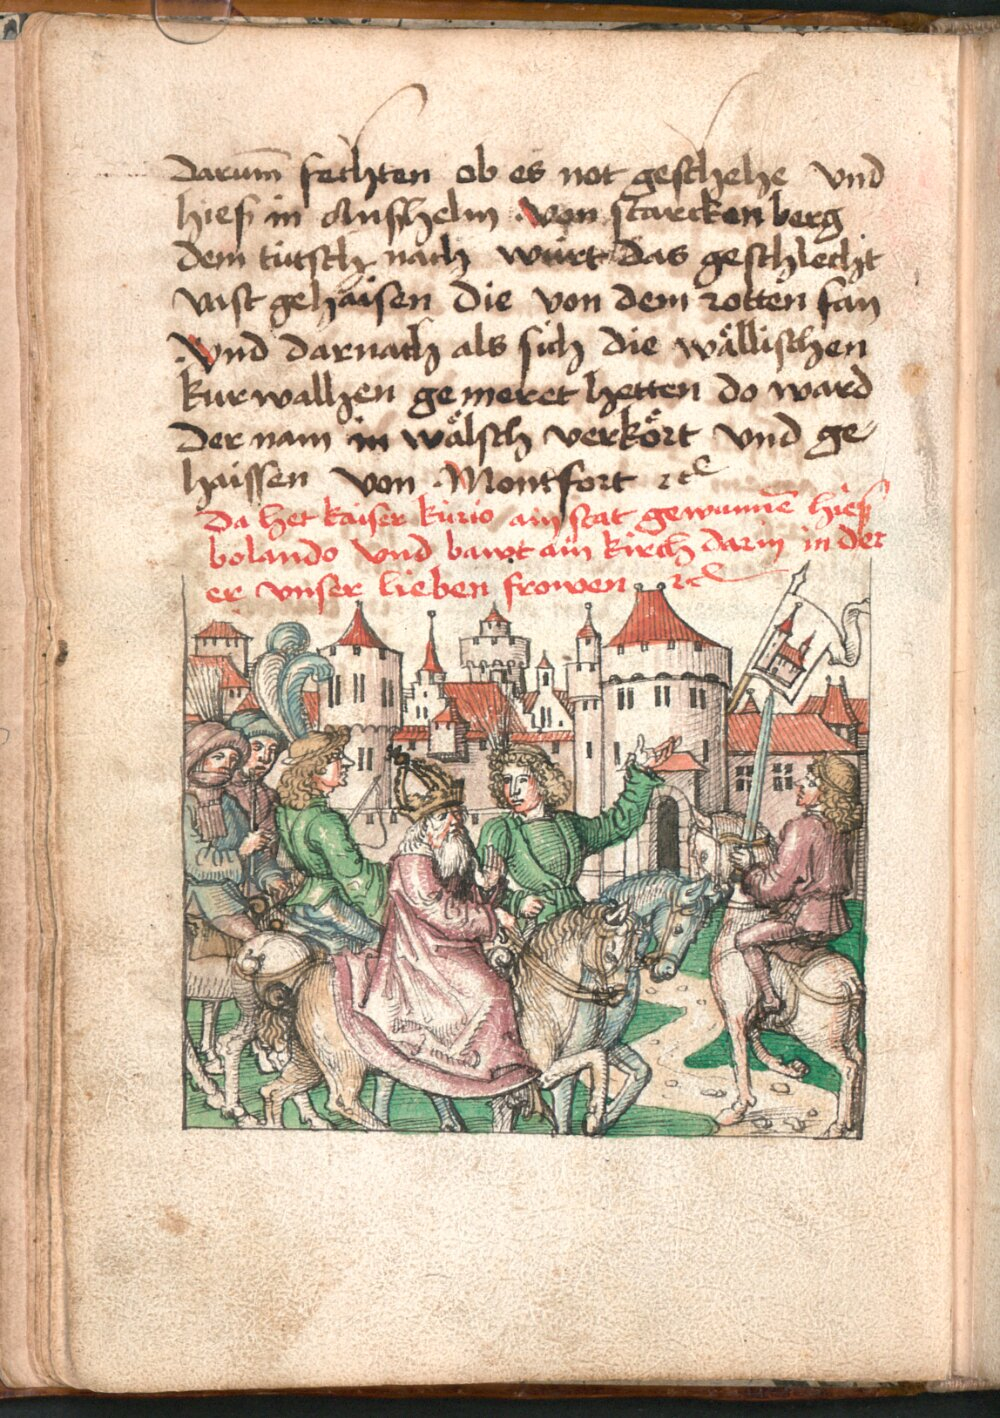 darum̄ fechten ob es not geschehe Vnd
hieß in Anshelm Von starckenberg
dem tütsch nach würt das geschlecht
vast gehaisen die von dem rotten fan
Vnd darnach als sich die wällischen
kurwallhen gemeret hetten do ward
der nam in wälsch verkört Vnd ge
haissen von Montfort ꝛcᷓ
Da het kaiser kurio ain stat gewunnē hieß
bolando Vnd bawt ain kirch darin in der
er vnser lieben frowen ꝛcᷓ